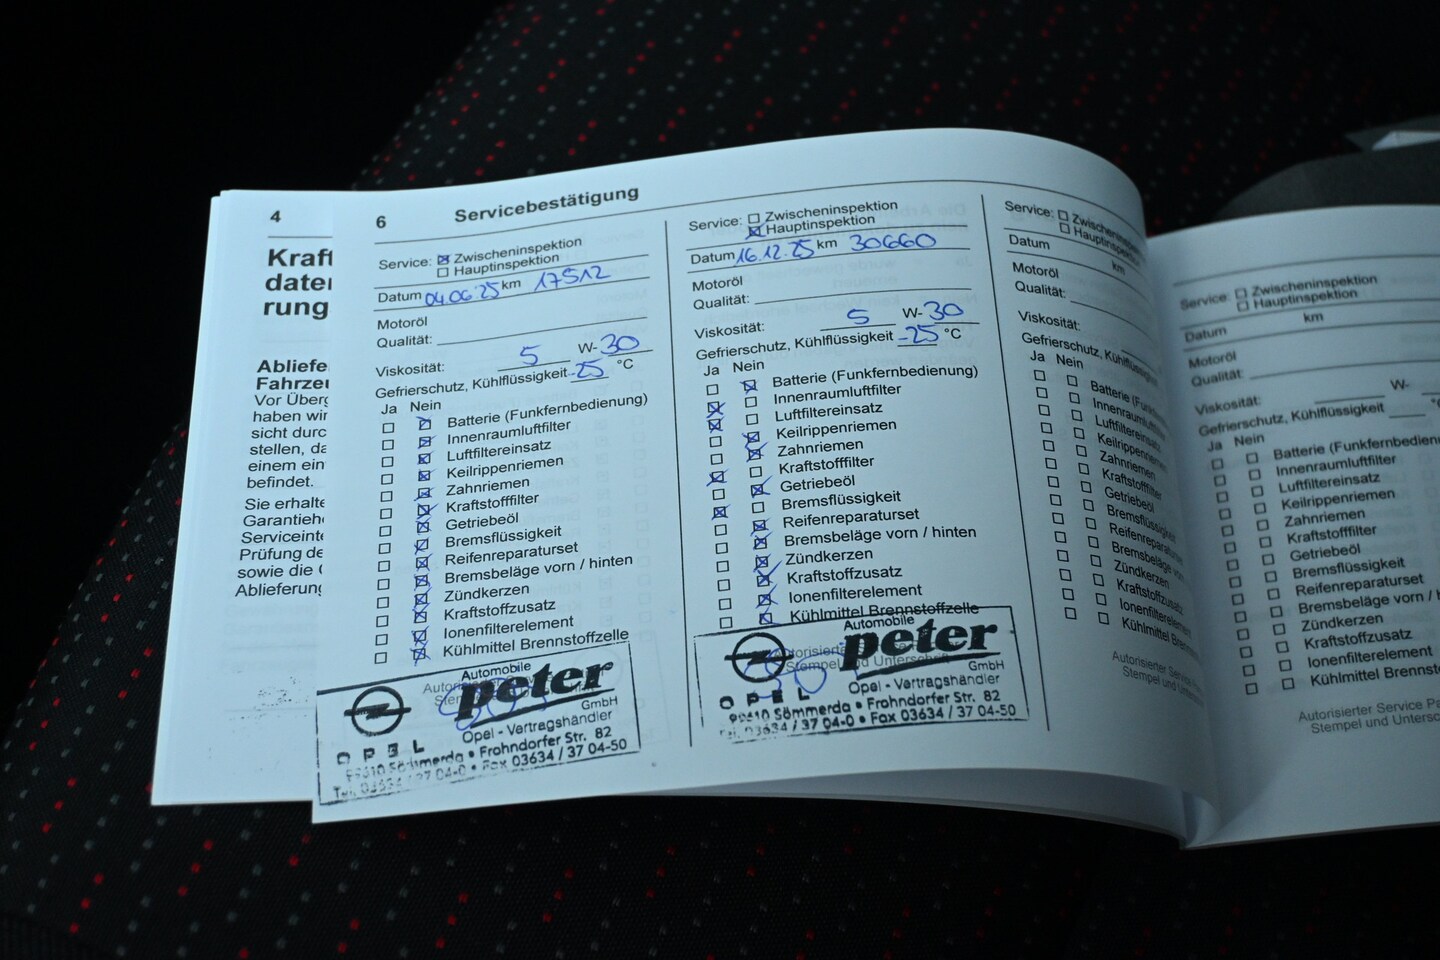 4
Kraf
date
rung
Abliefe
Fahrze
Vor Überg
haben wir
sicht durc
stellen, da
einem ein
befindet.
Sie erhalte
Garantieh
Serviceinte
Prüfung de
sowie die
Ablieferung
6 Servicebestätigung
Service: ☒ Zwischeninspektion
☐ Hauptinspektion
Datum 04.06.25 km 17512
Motoröl
Qualität:
Viskosität: 5 W-30
Gefrierschutz, Kühlflüssigkeit -25 °C
Ja Nein
☐ ☒ Batterie (Funkfernbedienung)
☐ ☒ Innenraumluftfilter
☐ ☒ Luftfiltereinsatz
☐ ☒ Keilrippenriemen
☐ ☒ Zahnriemen
☐ ☒ Kraftstofffilter
☐ ☒ Getriebeöl
☐ ☒ Bremsflüssigkeit
☐ ☒ Reifenreparaturset
☐ ☒ Bremsbeläge vorn / hinten
☐ ☒ Zündkerzen
☐ ☒ Kraftstoffzusatz
☐ ☒ Ionenfilterelement
☐ ☒ Kühlmittel Brennstoffzelle
Automobile
peter
GmbH
Opel - Vertragshändler
OPEL
99610 Sömmerda • Frohndorfer Str. 82
Tel. 03634 / 37 04-0 • Fax 03634 / 37 04-50
Service: ☐ Zwischeninspektion
☒ Hauptinspektion
Datum 16.12.25 km 30660
Motoröl
Qualität:
Viskosität: 5 W-30
Gefrierschutz, Kühlflüssigkeit -25 °C
Ja Nein
☐ ☒ Batterie (Funkfernbedienung)
☒ ☐ Innenraumluftfilter
☒ ☐ Luftfiltereinsatz
☐ ☒ Keilrippenriemen
☐ ☒ Zahnriemen
☒ ☐ Kraftstofffilter
☐ ☒ Getriebeöl
☒ ☐ Bremsflüssigkeit
☐ ☒ Reifenreparaturset
☐ ☒ Bremsbeläge vorn / hinten
☐ ☒ Zündkerzen
☐ ☒ Kraftstoffzusatz
☐ ☒ Ionenfilterelement
☐ ☒ Kühlmittel Brennstoffzelle
Automobile
peter
Autorisierter
Stempel und Unterschrift
GmbH
Opel - Vertragshändler
OPEL
99610 Sömmerda • Frohndorfer Str. 82
Tel. 03634 / 37 04-0 • Fax 03634 / 37 04-50
Service: ☐ Zwischeninspekt
☐ Hauptinspekt
Datum km
Motoröl
Qualität:
Viskosität:
Gefrierschutz, Kühlflüssig
Ja Nein
☐ ☐ Batterie (Funk
☐ ☐ Innenraumluft
☐ ☐ Luftfiltereinsatz
☐ ☐ Keilrippenrieme
☐ ☐ Zahnriemen
☐ ☐ Kraftstofffilter
☐ ☐ Getriebeöl
☐ ☐ Bremsflüssig
☐ ☐ Reifenreparatu
☐ ☐ Bremsbeläge
☐ ☐ Zündkerzen
☐ ☐ Kraftstoffzusatz
☐ ☐ Ionenfilterelemen
☐ ☐ Kühlmittel Brenn
Autorisierter Service
Stempel und Unters
Service: ☐ Zwischeninspektion
☐ Hauptinspektion
Datum km
Motoröl
Qualität:
Viskosität: W-
Gefrierschutz, Kühlflüssigkeit °C
Ja Nein
☐ ☐ Batterie (Funkfernbedien
☐ ☐ Innenraumluftfilter
☐ ☐ Luftfiltereinsatz
☐ ☐ Keilrippenriemen
☐ ☐ Zahnriemen
☐ ☐ Kraftstofffilter
☐ ☐ Getriebeöl
☐ ☐ Bremsflüssigkeit
☐ ☐ Reifenreparaturset
☐ ☐ Bremsbeläge vorn / h
☐ ☐ Zündkerzen
☐ ☐ Kraftstoffzusatz
☐ ☐ Ionenfilterelement
☐ ☐ Kühlmittel Brennst
Autorisierter Service Pa
Stempel und Untersc